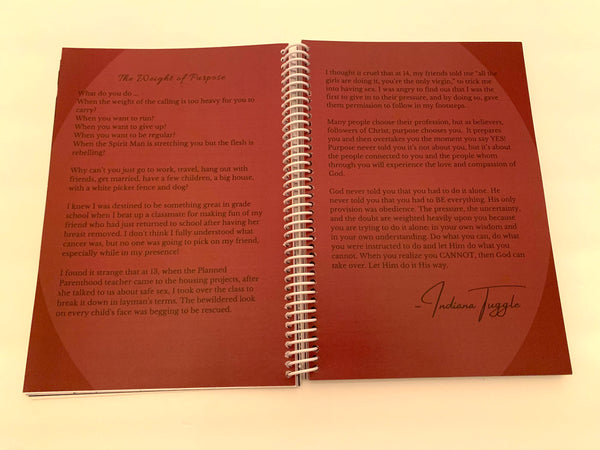 The Weight of Purpose
What do you do ...
When the weight of the calling is too heavy for you to
carry?
When you want to run?
When you want to give up?
When you want to be regular?
When the Spirit Man is stretching you but the flesh is
rebelling?
Why can't you just go to work, travel, hang out with
friends, get married, have a few children, a big house,
with a white picker fence and dog?
I knew I was destined to be something great in grade
school when I beat up a classmate for making fun of my
friend who had just returned to school after having her
breast removed. I don't think I fully understood what
cancer was, but no one was going to pick on my friend,
especially while in my presence!
I found it strange that at 13, when the Planned
Parenthood teacher came to the housing projects, after
she talked to us about safe sex, I took over the class to
break it down in layman's terms. The bewildered look
on every child's face was begging to be rescued.
I thought it cruel that at 14, my friends told me "all the
girls are doing it, you're the only virgin," to trick me
into having sex. I was angry to find out that I was the
first to give in to their pressure, and by doing so, gave
them permission to follow in my footsteps.
Many people choose their profession, but as believers,
followers of Christ, purpose chooses you. It prepares
you and then overtakes you the moment you say YES!
Purpose never told you it's not about you, but it's about
the people connected to you and the people whom
through you will experience the love and compassion of
God.
God never told you that you had to do it alone. He
never told you that you had to BE everything. His only
provision was obedience. The pressure, the uncertainty,
and the doubt are weighted heavily upon you because
you are trying to do it alone; in your own wisdom and
in your own understanding. Do what you can, do what
you were instructed to do and let Him do what you
cannot. When you realize you CANNOT, then God can
take over. Let Him do it His way.
-Indiana Tuggle